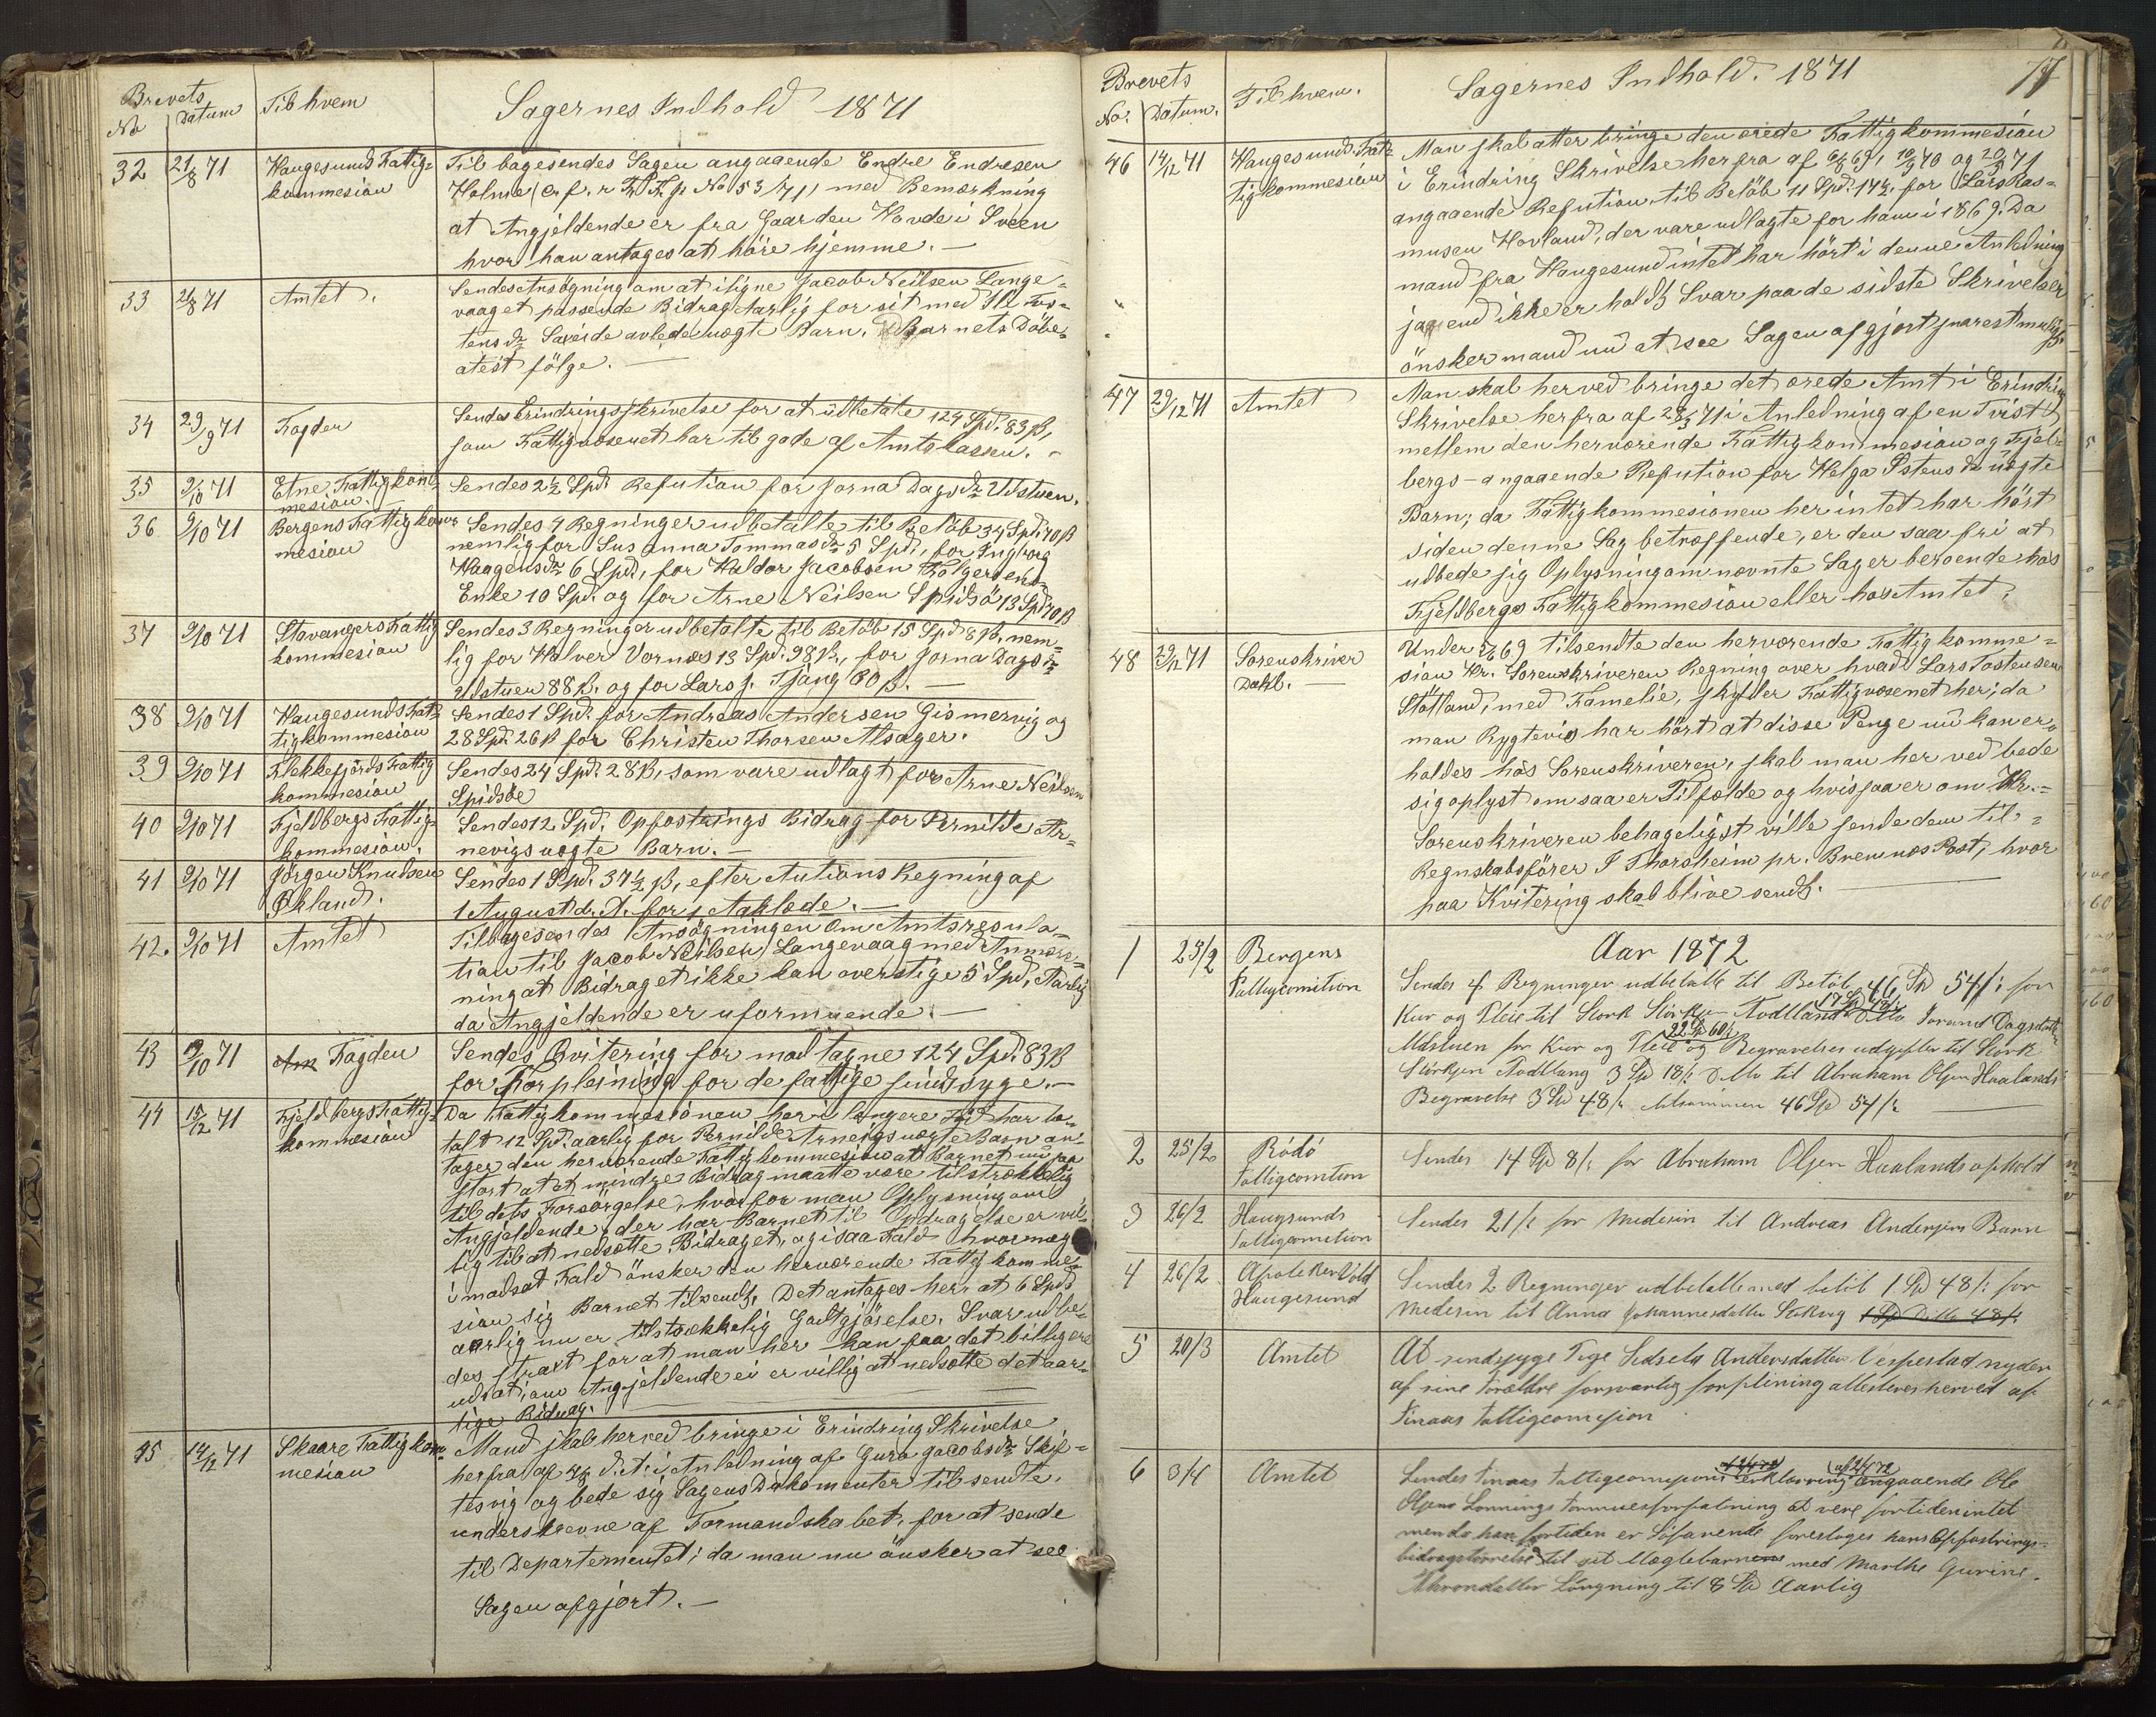 Brevets
No Datum Til hvem Sagernes Indhold 1871
32 21/8 71 Haugesunds Fattig= Til bagesendes Sagen angaaende Endre Endresen
kommesion Holme (cnf. r. F. K. p No 53/71) med Bemærkning
at Angjeldende er fra Gaarden Hovde i Sveen
hvor han antages at høre hjemme. —
33 21/8 71 Amtet. Sendes Ansøgning om at iligne Jacob Neilsen Lange=
vaaget passende Bidrag Aarlig for sit med
Saxeide avlede uægte Barn. Barnets Døbe=
atest følge. —
34 29/9 71 Fogden Sendes Erindringsskrivelse for at udbetale 124 Spd. 83 ß,
som Fattigvæsenet har til gode af Amtskassen. -
35 9/10 71 Etne Fattigkom= Sendes 2½ Spd. Refution for Jorna Dagsdr Udstuen.
mesion.
36 9/10 71 Bergens Fattigkom= Sendes 4 Regninger udbetalte til Beløb 34 Spd. 70 ß
mesion nemlig for Susanna Tommasdr 5 Spd., for Ingborg
Haagensdr 6 Spd, for Haldor Jacobsen
Enke 10 Spd. og for Arne Neilsen Spidsø 13 Spd 70 ß
37 9/10 71 Stavangers Fattig Sendes 3 Regninger udbetalte til Beløb 15 Spd 8 ß, nem=
kommesion lig for Halver Vornæs 13 Spd. 98 ß., for Jorna Dagsdr
Udstuen 88 ß. og for Lars J. Tjang 60 ß. —
38 9/10 71 Haugesunds Fat= Sendes 1 Spd. for Andreas Andersen Gismervig og
tigkommesion 28 Spd. 26 ß for Christen Thorsen Alsager.
39 9/10 71 Flekkefjords Fattig Sendes 24 Spd. 28 ß, som vare udlagt for Arne Neilsen
kommesion Spidsøe
40 9/10 71 Fjeldbergs Fattig= Sendes 12 Spd. Oppostrings Bidrag for Pernilde Ar=
kommesion. nevigs uægte Barn. —
41 9/10 71 Jørgen Knudsen Sendes 1 Spd. 37½ ß, efter Autions Regning af
Økland. 1 August d. A. for 1 Aaklæde. —
42. 9/10 71 Amtet Tilbagesendes Ansøgningen om Amtsresula=
tion til Jacob Neilsen Langevaag med Anmærk=
ning at Bidraget ikke kan overstige 5 Spd, Aarlig
da Angjeldende er uformuende. —
43 19/10 71 Fogden Sendes Qvitering for modtagne 124 Spd. 83 ß
for Forpleining for de fattige sindsyge. —
44 15/12 71 Fjeldbergs Fattig= Da Fattigkommesionen her i længere Tid har be=
kommesion talt 12 Spd. aarlig for Pernilde Arnevigs uægte Barn an=
tager den herværende Fattigkommesion at Barnet nu saa
stort at et mindre Bidrag maatte være tilstrækkelig
til dets Forsørgelse, hvorfor man Oplysning om
Angjeldende, der har Barnet til Opdragelse er vil=
lig til at nedsætte Bidraget, og i saa Fald hvormeget
i modsat Fald ønsker den herværende Fattigkomme=
sion sig Barnet tilsendt. Det antages her at 6 Spd
aarlig nu er tilstrækkelig Godtgjørelse. Svar udbe=
des strast for at man her kan faa det billigere
udsat, om Angjeldende ei er villig at nedsætte det aar=
lige Bidrag.
45 14/12 71 Skaare Fattigkom= Mand skal herved bringe i Erindring Skrivelse
mesion herfra af d. A. i Anledning af Guro Jacobsdr Skif=
tesvig og bede sig Sagens Dokomenter tilsendte.
underskrevne af Formandskabet, for at sende
til Departementet; da man nu ønsker at see
Sagen afgjort. —
Brevets 77
No. Datum. Til hvem. Sagernes Indhold. 1871
46 14/12 71 Haugesunds Fat= Man skal atter bringe den ærede Fattigkommesion
tigkommesion i Erindring Skrivelse herfra af 69, 70 og 71
angaaende Refution til Beløb 11 Spd. 17 ß. for Lars Ras=
musen Hovland, der vare udlagte for ham i 1869. Da
mand fra Haugesund intet har hørt i denne Anledning
ikke er holdt Svar paa de sidste Skrivelser
ønsker mand nu at see Sagen afgjort snarest muligt.
47 29/12 71 Amtet Man skal herved bringe det ærede Amt i Erindring
Skrivelse herfra af 71 i Anledning af en Tvist
mellem den herværende Fattigkommesion og Fjel=
bergs - angaaende Refution for Helga Østensdr uægte
Barn; da Fattigkommesionen her intet har hørt
siden denne Sag betræffende, er den saa fri at
udbede sig Oplysning om nævnte Sager beroende hos
Fjeldbergs Fattigkommesion eller hos Amtet.
48 29/12 71 Sorenskriver Under 69 tilsendte den herværende Fattigkomme=
Dahl. — sion Hr. Sorenskriveren Regning over hvad Lars Tostensen
Støtland, med Famelie, skylder Fattigvæsenet her; da
man Rygtevis har hørt at disse Penge nu kan er=
holdes hos Sorenskriveren, skal man her ved bede
sig oplyst om saa er Tilfælde og hvis saa er om Hr. =
Sorenskriveren behageligst ville sende dem til =
Regnskabsfører T Thorsheim pr. Bremnes Post, hvor
paa Kvitering skal blive sendt. —
Aar 1872
1 25/2 Bergens Sendes 4 Regninger udbetalte til Beløb 46 Sp 54 ß for
Fattigcomition Kur og Pleie til Stork Storksen Todlland 17 Sp 48 ß Ditto Jorand Dagsdatter
Udstuen for Kur og Pleie 22 Sp 60 ß og Begravelses udgifter til Stork
Storksen Todllang 3 Sp 18 ß Ditto til Abraham Olsen Haalands
Begravelse 3 Sp 48 ß tilsammen 46 Sp 54 ß
2 25/2 Rödö Sendes 14 Sp 8 ß for Abraham Olsen Haalands ophold
Fattigcomition
3 26/2 Haugsunds Sendes 21 ß for Medesin til Andreas Andersens Barn
Fattigcomition
4 26/2 Apoteker Vold Sendes 2 Regninger udbetalte med beløb 1 Sp 48 ß for
Haugesund Medesin til Anna Johannesdatter Stokvig 1 Sp Ditto 48 ß
5 20/3 Amtet At sindssyge Pige Sidsela Andersdatter Vespestad nyder
af sine Forældre forsvarlig forpleining attesteres herved af
Finaas Fattigcomision
6 3/4 Amtet Sendes Finaas Fattigcomisions erklæring af 2/4 72 angaaende Ole
Olsens Lønnings Formuesforfatning at være fortiden intet
men da han fortiden er Søfarende foreslages hans Oppfostrings=
bidrags til sit Uægtebarn med Marthe Gurine
til 8 Sp Aarlig